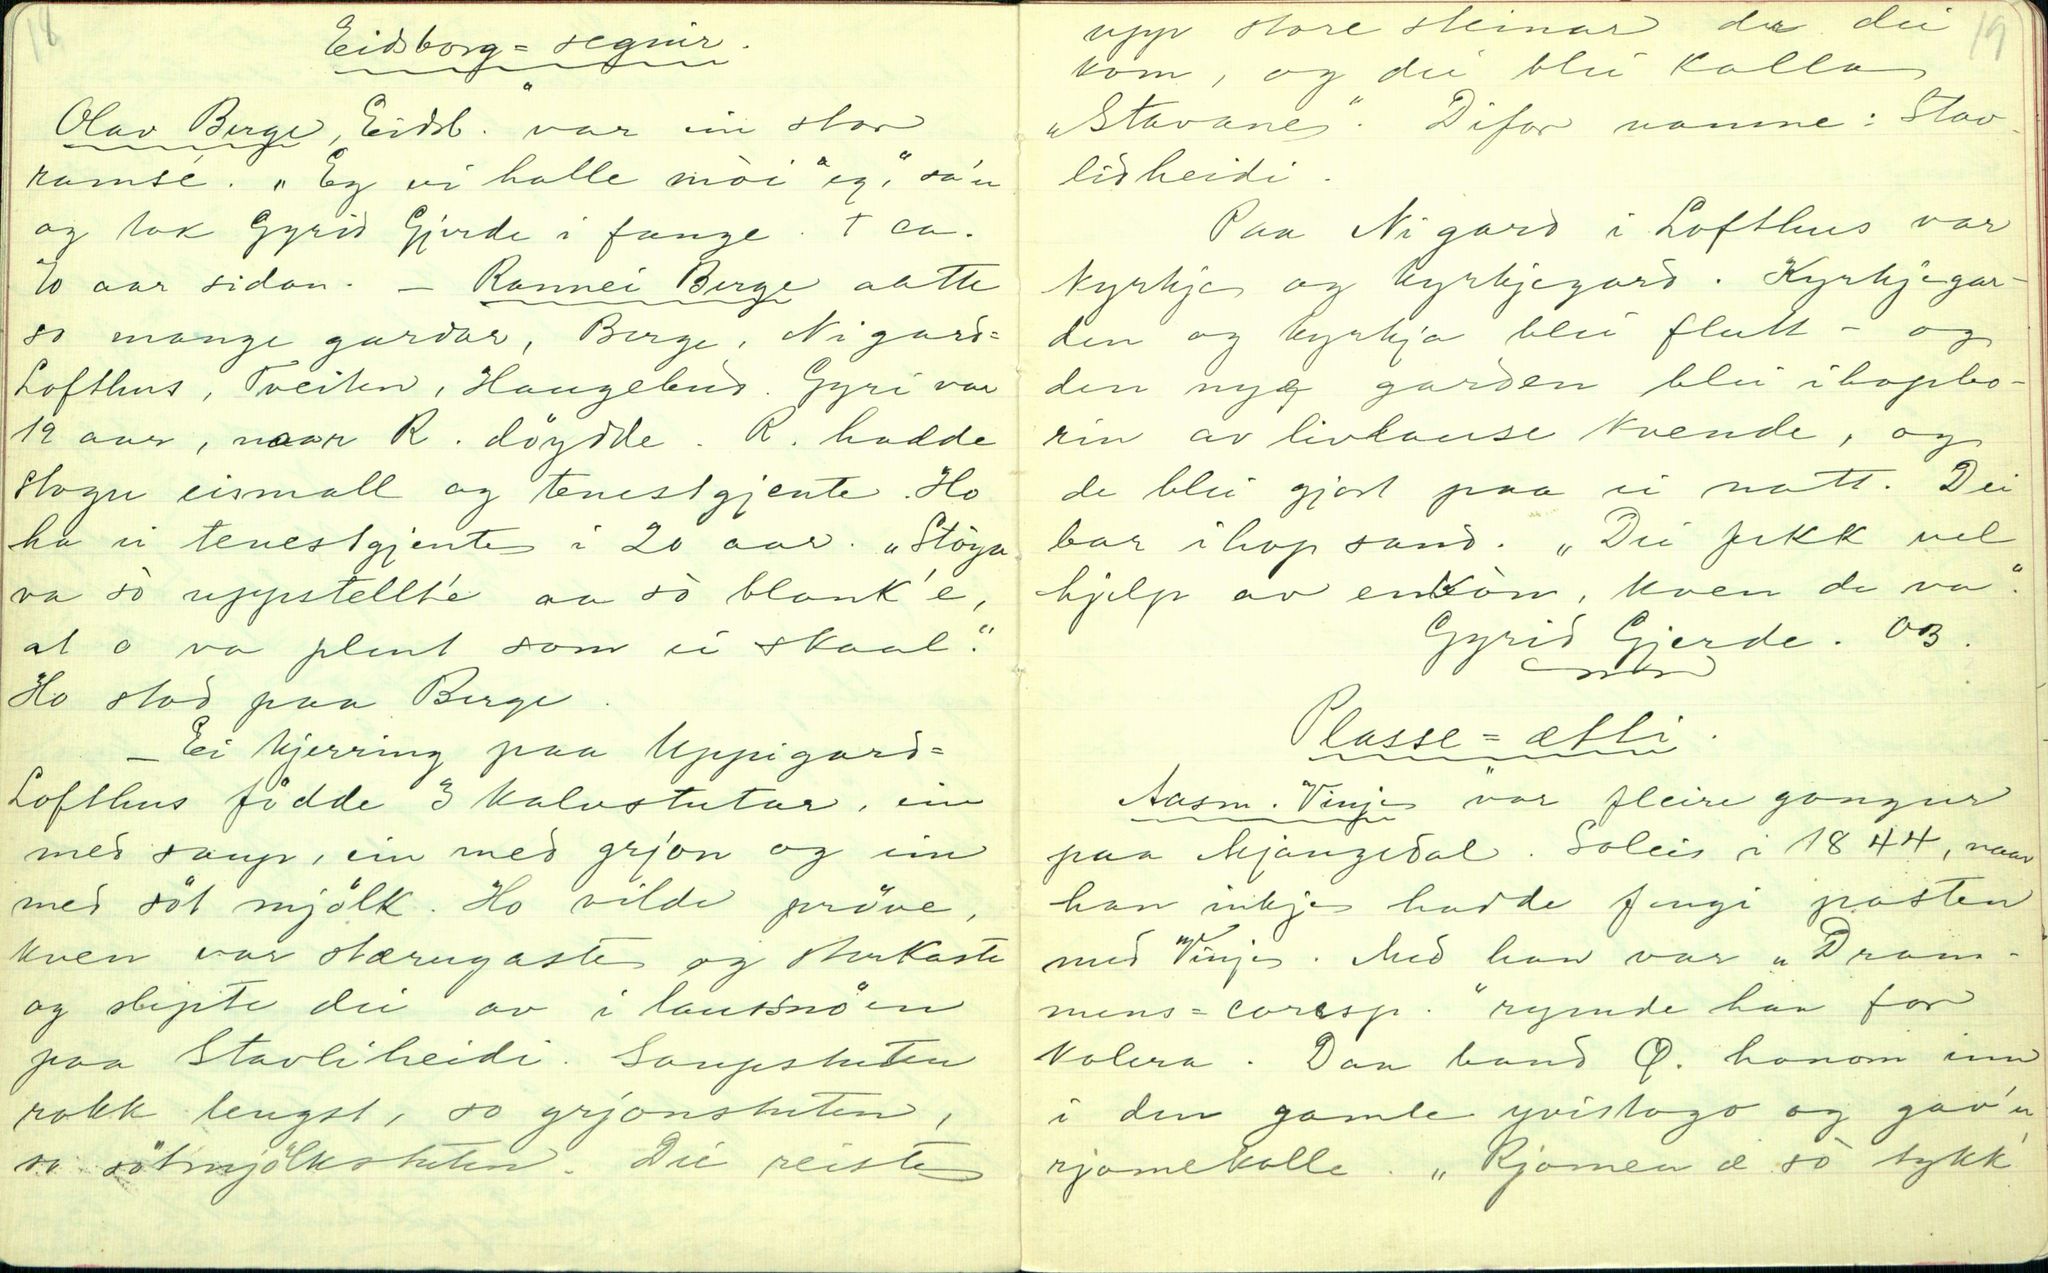 18
Eidsborg=segnir.
Olav Berge, Eidsb. var ein stor
ramse. „Eg vi halle möi eg," sa'n
og tok Gyrid Gjerde i fange. † ca.
70 aar sidan. — Rannei Berge aatte
so mange gardar, Berge, Nigard=
Lofthus, Tveiten, Haugebud. Gyri var
12 aar, naar R. döydde. R. hadde
stogu eismall og tenestgjente. Ho
ha ei tenestgjente i 20 aar. „Stöga
va sò uppstellt'e aa sò blank'e,
at o va plent som ei skaal."
Ho stod paa Berge.
— Ei kjerring paa Uppigard=
Lofthus födde 3 kalvstutar, ein
med saup, ein med grjon og ein
med söt mjölk. Ho vilde pröve,
kven var stærugaste og sterkaste
og slepte dei av i laussnöen
paa Stavliheidi. Saupstuten
rakk lengst, so grjonstuten,
so sötmjölkstuten. Dei reiste
19
upp store steinar der dei
kom, og dei blei kalla
„Stavane". Difor namne: Stav-
lidheidi.
Paa Nigard i Lofthus var
kyrkje og kyrkjegard. Kyrkjegar-
den og kyrkja blei flutt – og
den nye garden blei ihopbo-
rin av livlause kvende, og
de blei gjort paa ei natt. Dei
bar ihop sand. „Dei fekk vel
hjelp av enkòn, kven de va".
Gyrid Gjerde. OB.
Plasse=ætti.
Aasm. Vinje var fleire gongur
paa Mjaugedal. Soleis i 1844, naar
han inkje hadde fengi posten
med Vinje. Med han var „Dram-
mens=coresp." rymde han for
kolera. Daa band Ø. honom inn
i den gamle yvistogo og gav'n
rjomekolle. „Rjomen æ sò tykk'